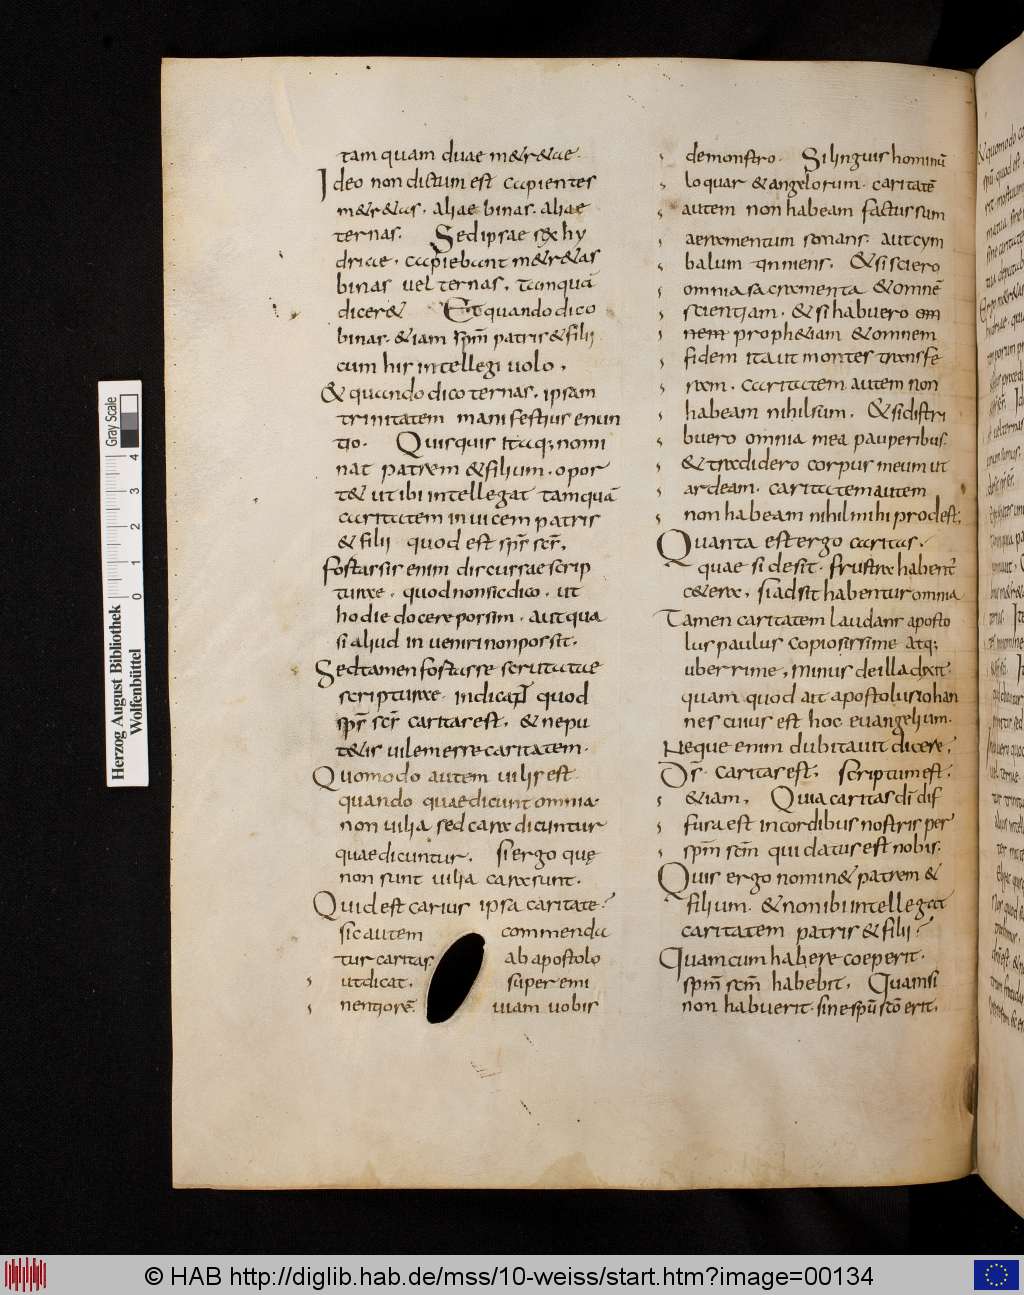 tamquam duae m&r&ae.
Ideo non dictum est capientes
m&r&as. aliae binas. aliae
ternas. Sed ipsae sex hy
driae. capiebant m&r&as
binas vel ternas. tamquā
dicer& Et quando dico
binas. &iam spm̄ patris & filii
cum his intellegi uolo.
& quando dico ternas. ipsam
trinitatem manifestius enun
tio. Quisquis itaq; nomi
nat patrem & filium. opor
t& ut ibi intellegat tamquā
caritatem inuicem patris
& filii quod est sps̄ scs̄.
fortassis enim discussae scrip
turae. quod non sic dico. ut
hodie docere possim. aut qua
si aliud inueniri non possit.
Sed tamen fortasse scrutatae
scripturae. indicant quod
sps̄ scs̄ caritas est. & ne pu
t&is uilem esse caritatem.
Quomodo autem uilis est
quando quae dicunt omnia.
non uilia sed cara dicuntur
quae dicuntur. si ergo quę
non sunt uilia cara sunt.
Quid est carius ipsa caritate?
sic autem commenda
tur caritas ab apostolo
ut dicat. superemi
nentiorē. uiam uobis
demonstro. Si linguis hominū
loquar & angelorum. caritatē
autem non habeam factus sum
aeramentum sonans. aut cym
balum tinniens. & si sciero
omnia sacramenta & omnē
scientiam. & si habuero om
nem proph&iam & omnem
fidem ita ut montes transfe
ram. caritatem autem non
habeam nihil sum. & si distri
buero omnia mea pauperibus.
& tradidero corpus meum ut
ardeam. caritatem autem
non habeam nihil mihi prodest.
Quanta est ergo caritas.
quae si desit. frustra habent̄
c&era. si adsit habentur omnia
Tamen caritatem laudans aposto
lus paulus copiosissime atq;
uberrime. minus de illa dixit.
quam quod ait apostolus iohan
nes cuius est hoc euangelium.
Neque enim dubitauit dicere.
Ds̄. caritas est. scriptum est.
&iam. Quia caritas dī dif
fusa est in cordibus nostris per
spm̄ scm̄ qui datus est nobis.
Quis ergo nomin& patrem &
filium. & non ibi intellegat
caritatem patris & filii?
Quam cum habere coeperit.
spm̄ scm̄ habebit. Quam si
non habuerit. sine spū scō erit.
Herzog August Bibliothek
Wolfenbüttel
0 1 2 3 4
Gray Scale
© HAB http://diglib.hab.de/mss/10-weiss/start.htm?image=00134